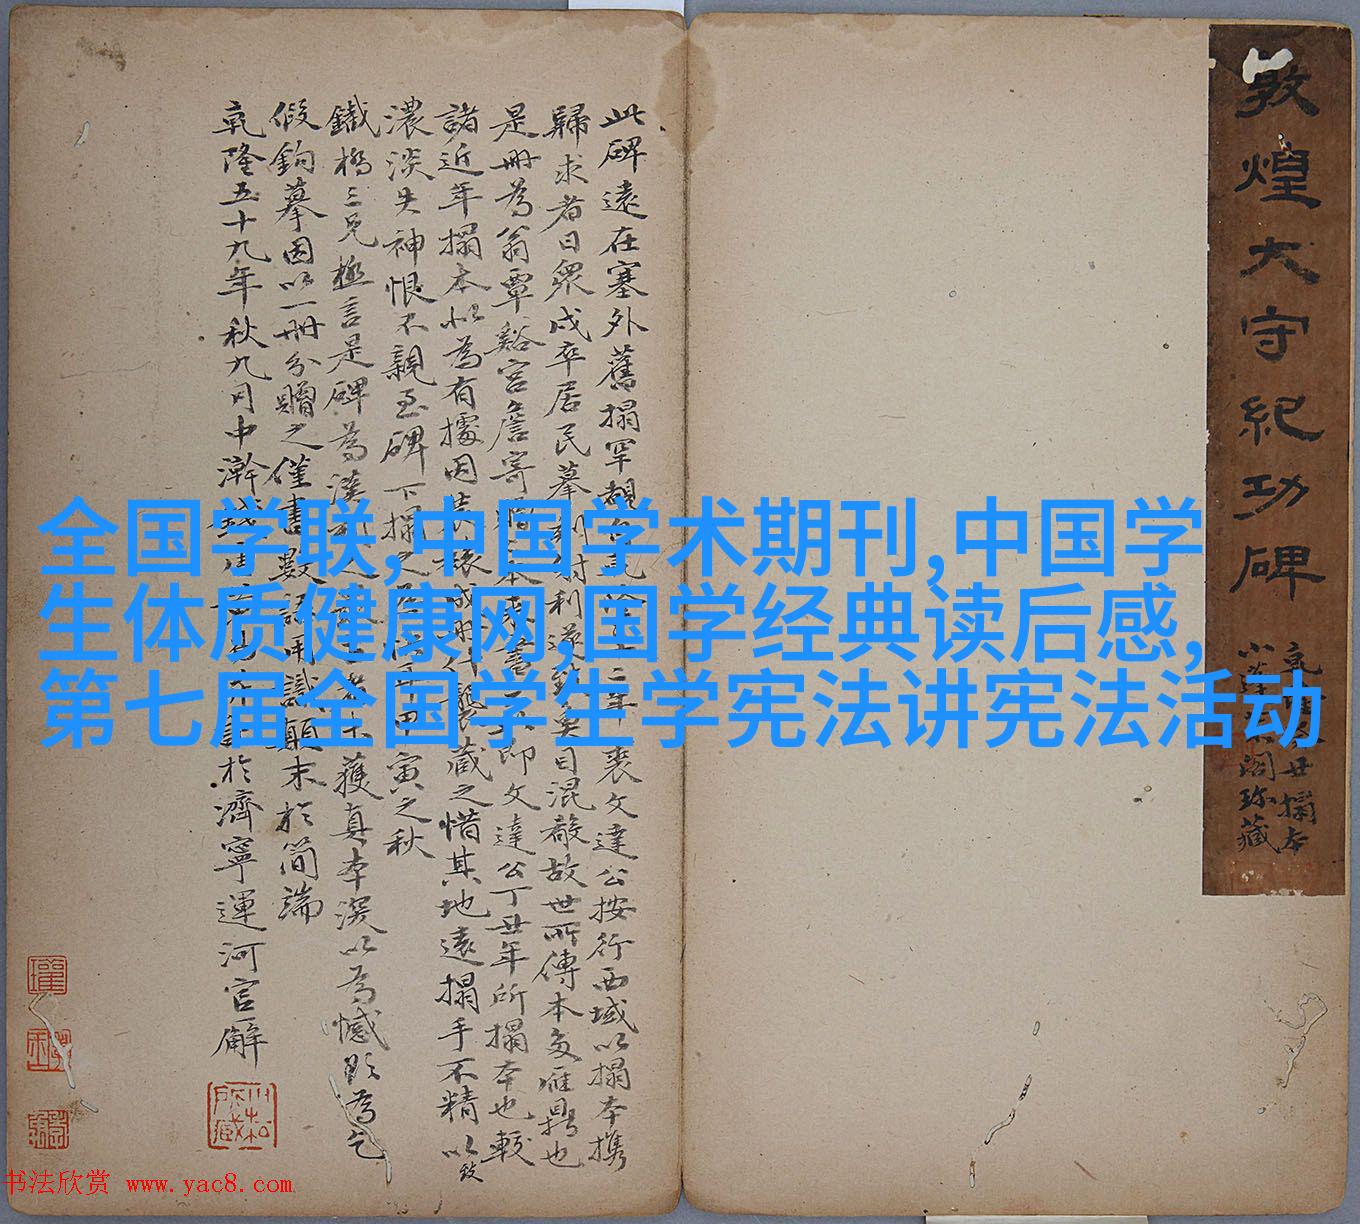 敦煌太守紀功碑
小蓬
閣珍藏
此碑遠在塞外舊搨罕覯
裘文達公按行西域以搨本携
歸求者日眾戍卒居民摹刻射利遂致
魚目混殽故世所傳本多雁鼎也
是冊為翁覃谿宮詹寄
即文達公丁丑年所搨本也較
諸近年搨本以為有據因裝
藏之惜其地遠搨手不精以致
濃淡失神恨不親至碑下搨之
甲寅之秋
鐵橋三兄極言是碑為漢
獲真本深以為憾欣為乞
假鉤摹因以一冊分贈之僅書數語用識顛末於簡端
乾隆五十九年秋九月中澣錢唐
於濟寧運河官廨
全国学联,中国学术期刊,中国学
生体质健康网,国学经典读后感,
第七届全国学生学宪法讲宪法活动
书法欣赏 www.yac8.com